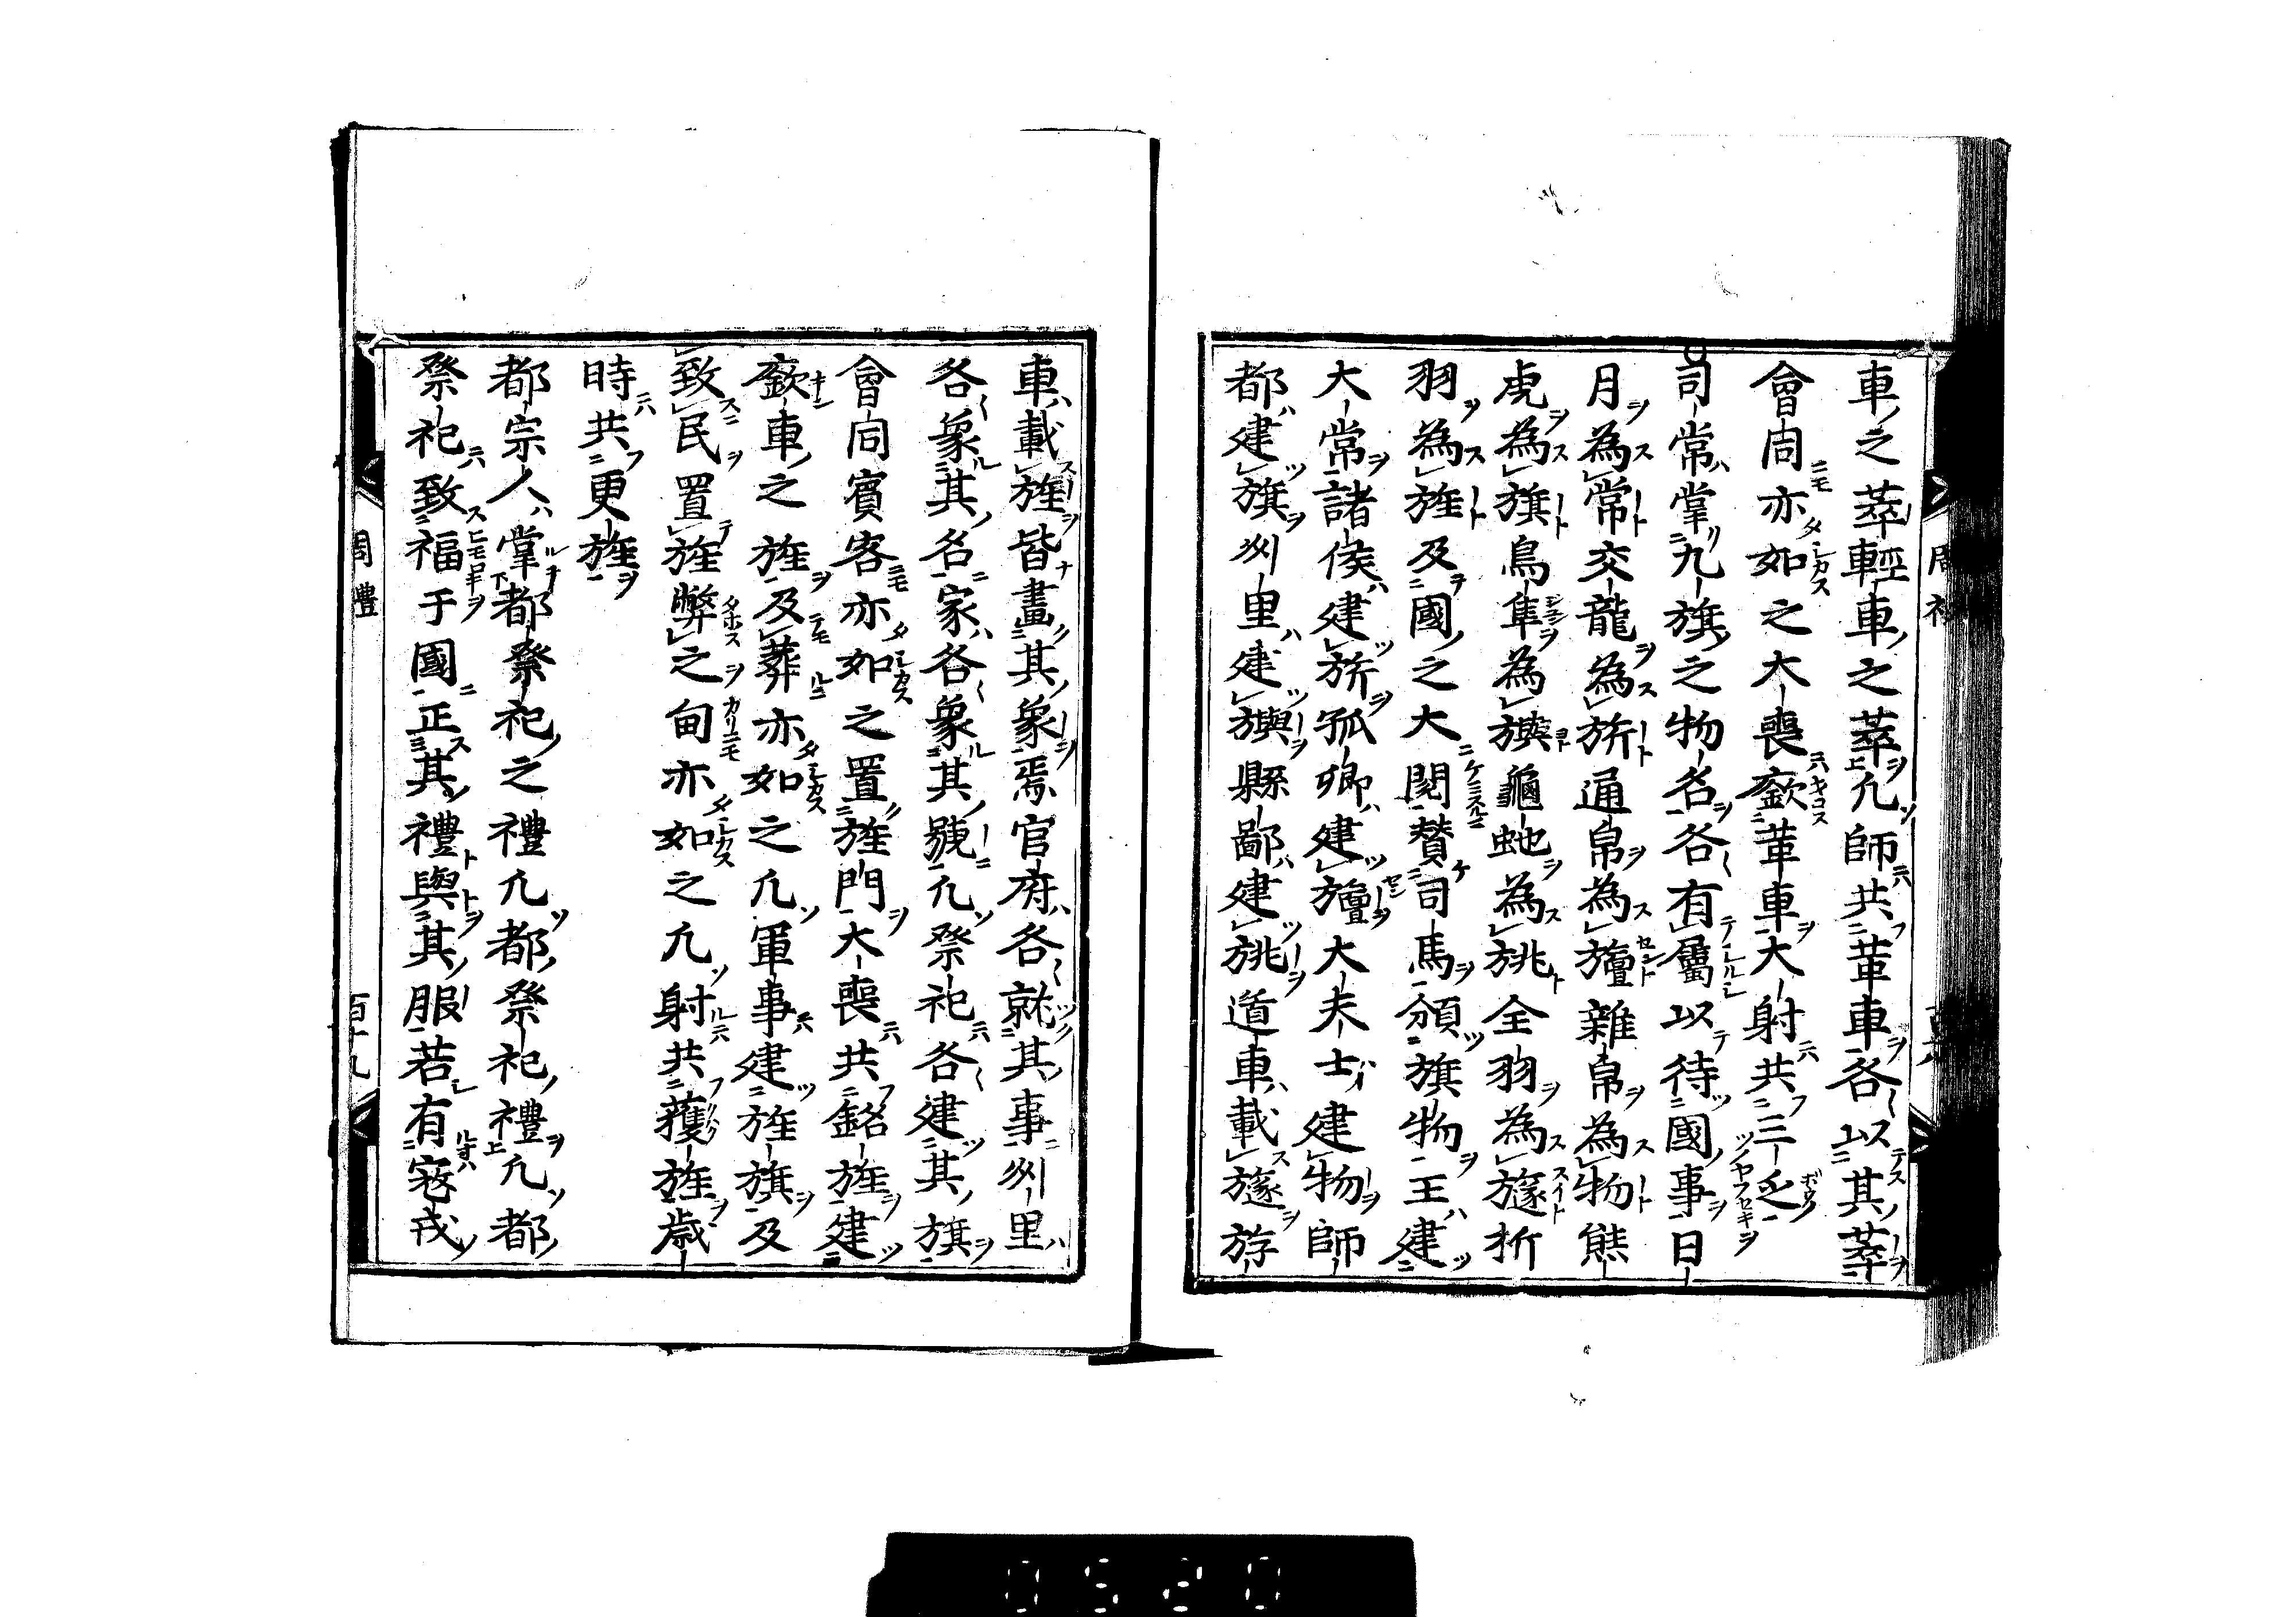 車之萃輕車之萃凡師共革車各以其萃
會同亦如之大喪廞革車大射共三乏
司常掌九旗之物名各有屬以待國事日
月為常交龍為旂通帛為旜雜帛為物熊
虎為旗鳥隼為旟龜蛇為旐全羽為旞析
羽為旌及國之大閱賛司馬頒旗物王建
大常諸侯建旂孤卿建旜大夫士建物師
都建旗州里建旟縣鄙建旐道車載旞斿
車載旌皆畫其象焉官府各就其事州里
各象其名家各象其號凡祭祀各建其旗
會同賓客亦如之置旌門大喪共銘旌建
廞車之旌及葬亦如之凡軍事建旌旗及
致民置旌弊之甸亦如之凡射共獲旌歲
時共更旌
都宗人掌都祭祀之禮凡都祭祀禮凡都
祭祀致福于國正其禮與其服若有寇戎
周禮
百十九
0520